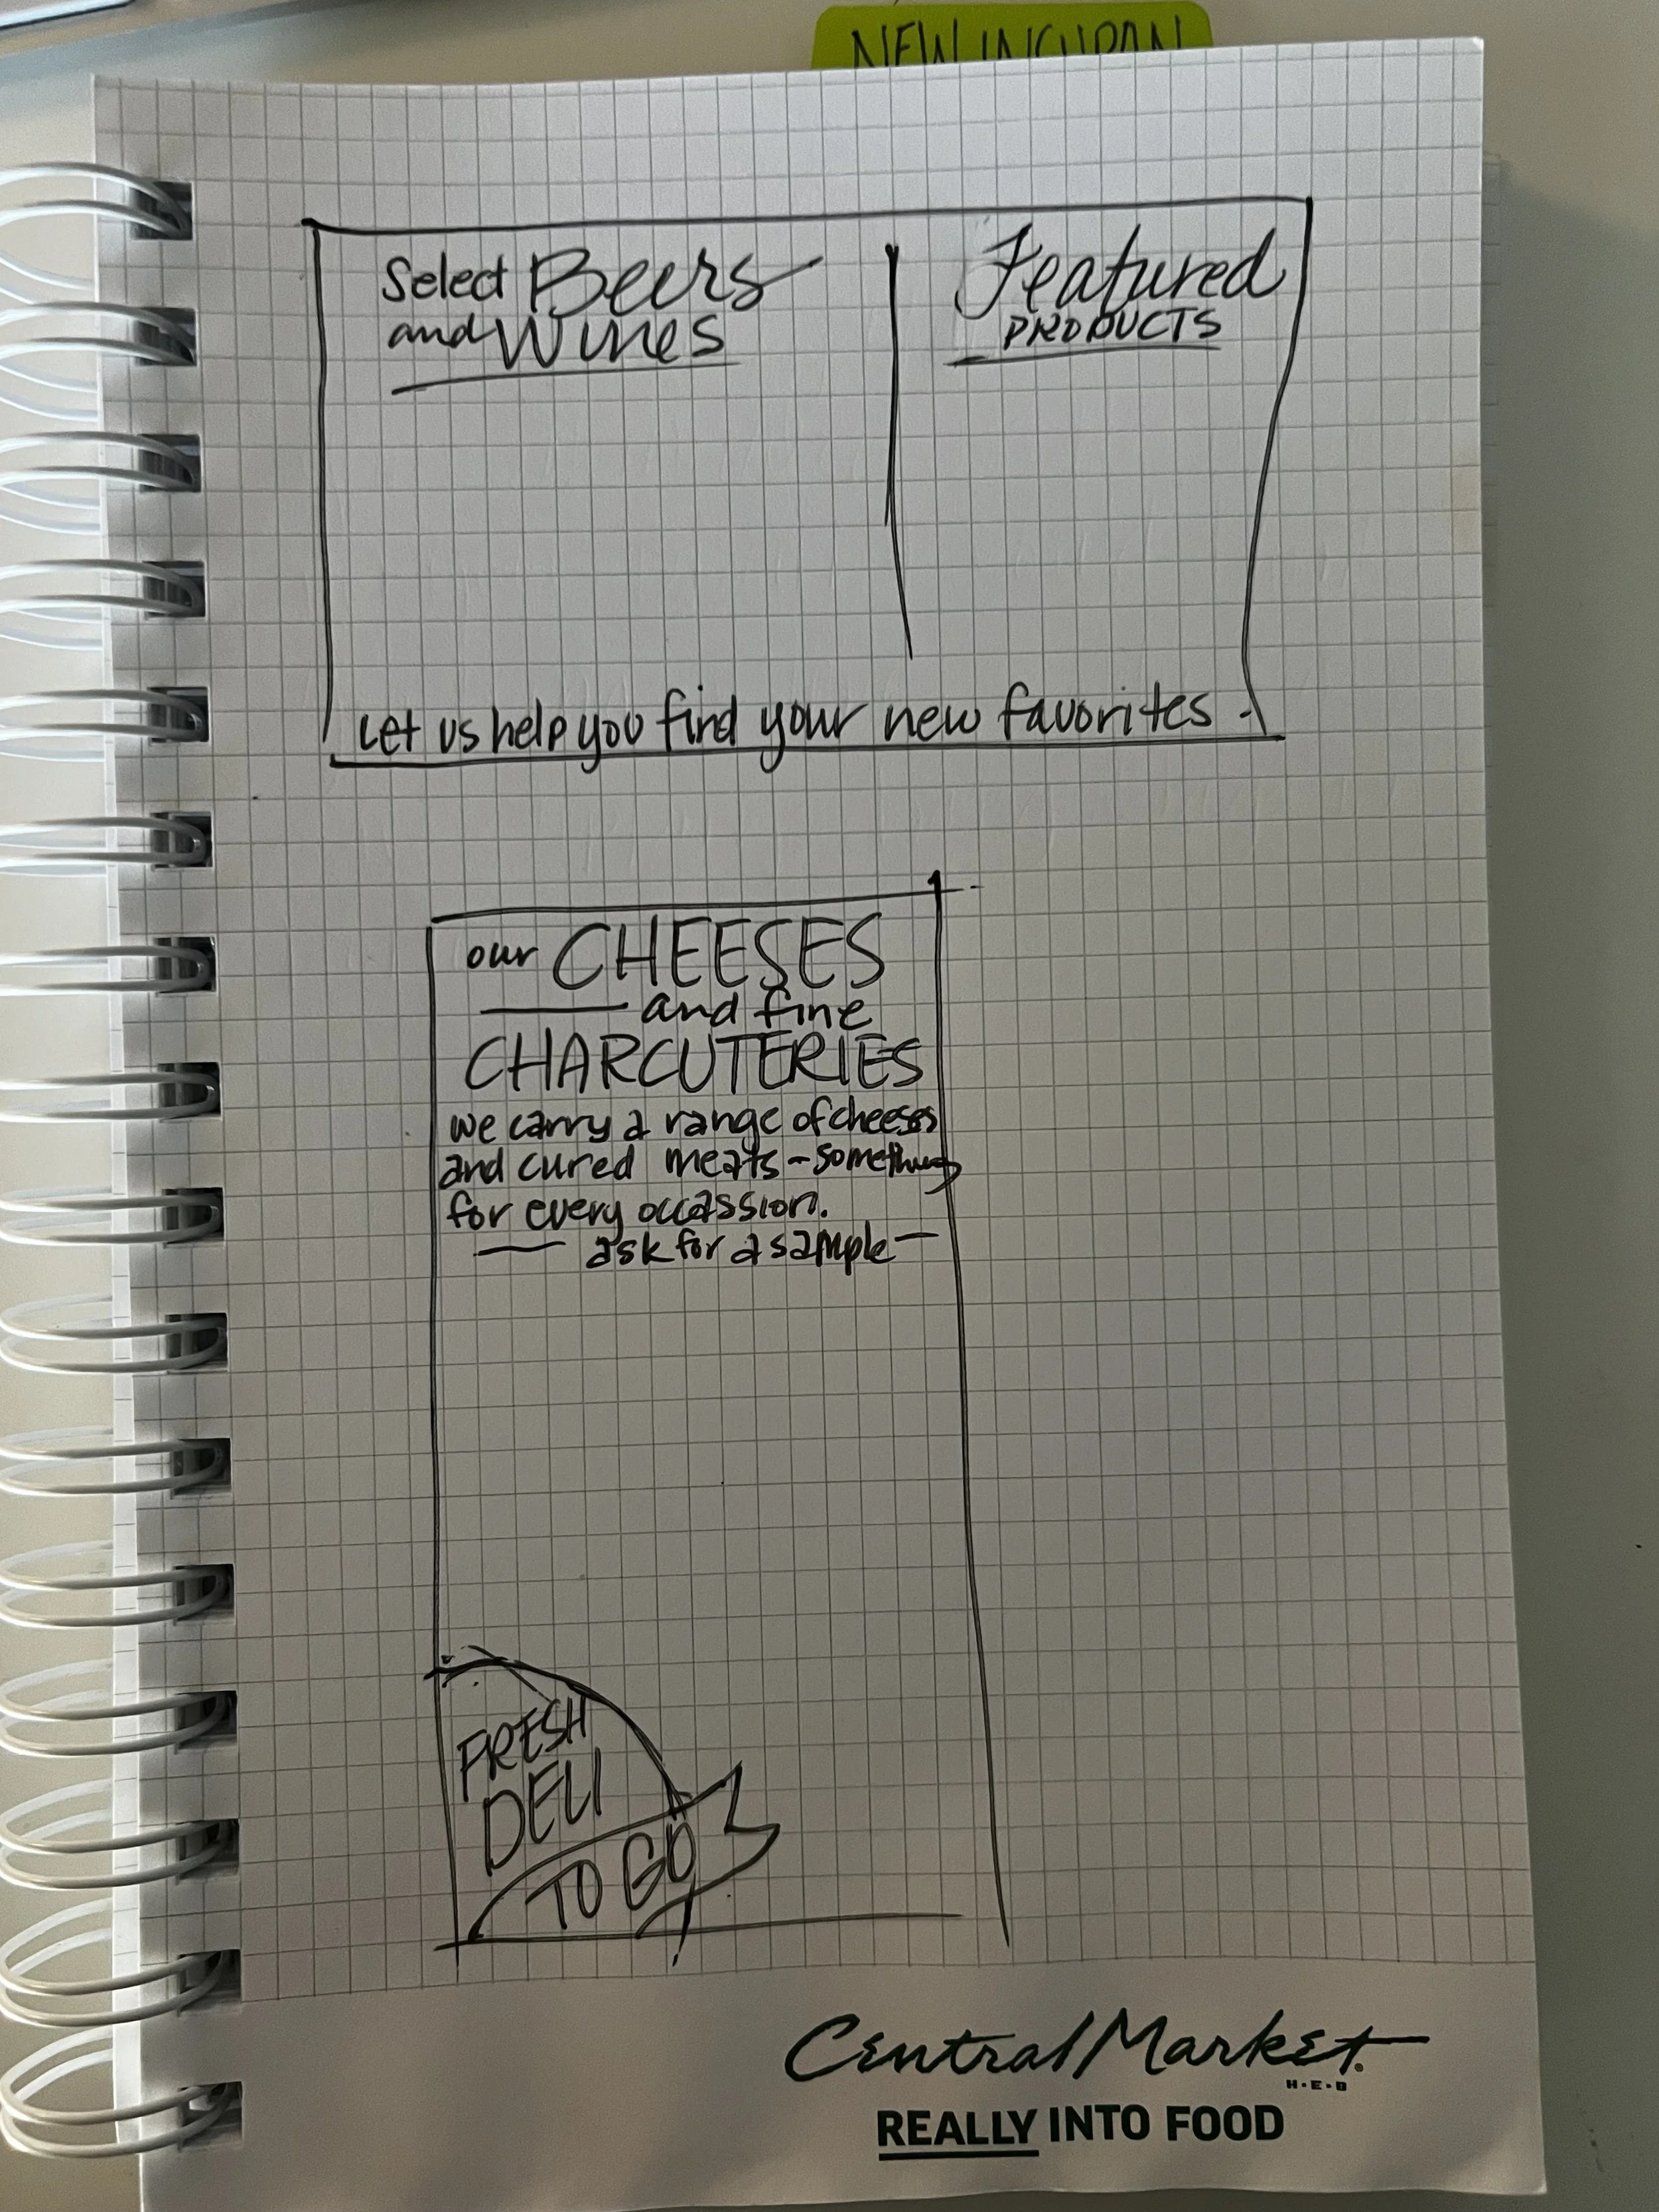 NEW IN CURAN
Select Beers
and Wines
Featured
PRODUCTS
Let us help you find your new favorites.
our CHEESES
and fine
CHARCUTERIES
we carry a range of cheeses
and cured meats - something
for every occassion.
ask for a sample
FRESH
DELI
TO GO
Central Market
H-E-B
REALLY INTO FOOD